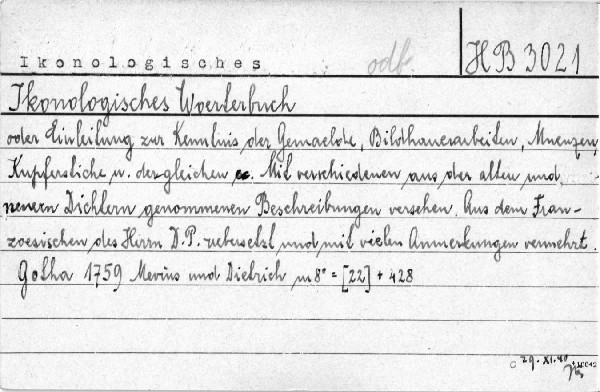 Ikonologisches
odf.
HB 3021
Ikonologisches Woerterbuch
oder Einleitung zur Kenntnis der Gemaelde, Bildhauerarbeiten, Muenzen,
Kupferstiche u. dergleichen ec. Mit verschiedenen aus der alten und
neuern Dichtern genommenen Beschreibungen versehen. Aus dem Fran-
zoesischen des Herrn D. P. uebersetzt und mit vielen Anmerkungen vermehrt.
Gotha 1759 Mevius und Dietrich m 8° = [22] + 428
C 29. XI. 40